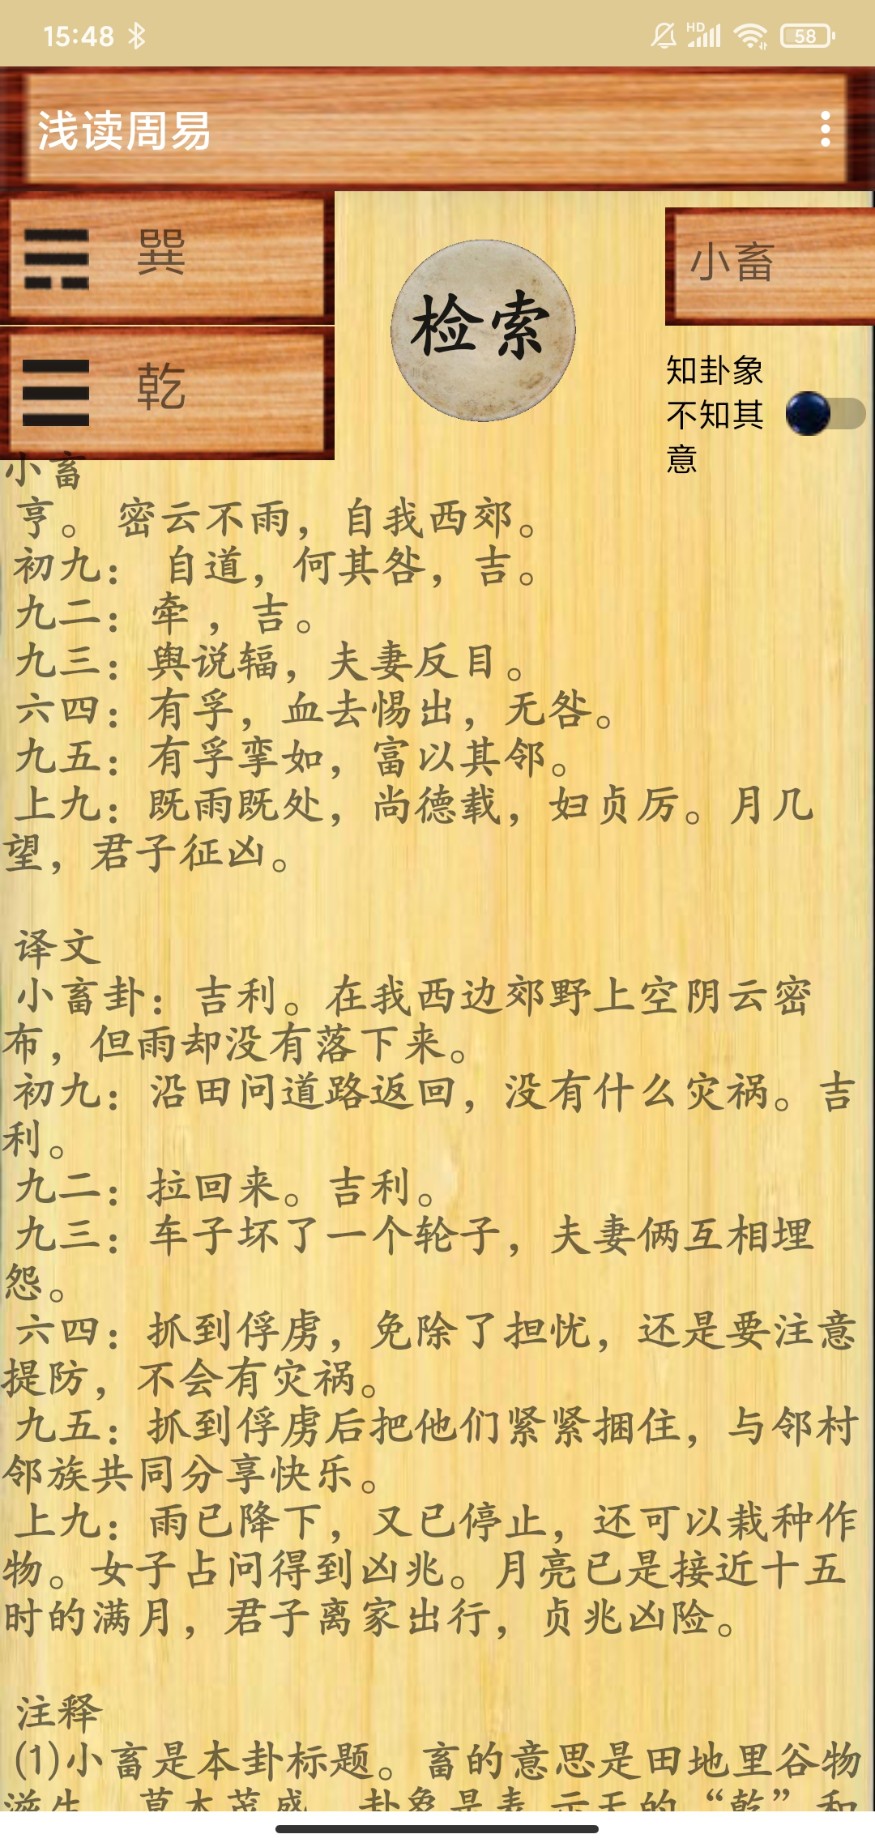 15:48
HD
58
浅读周易
巽
乾
检索
小畜
知卦象
不知其
意
小畜
亨。 密云不雨，自我西郊。
初九： 自道，何其咎，吉。
九二：牵 ，吉。
九三：舆说辐，夫妻反目。
六四：有孚，血去惕出，无咎。
九五：有孚挛如，富以其邻。
上九：既雨既处，尚德载，妇贞厉。月几
望，君子征凶。
译文
小畜卦：吉利。在我西边郊野上空阴云密
布，但雨却没有落下来。
初九：沿田问道路返回，没有什么灾祸。吉
利。
九二：拉回来。吉利。
九三：车子坏了一个轮子，夫妻俩互相埋
怨。
六四：抓到俘虏，免除了担忧，还是要注意
提防，不会有灾祸。
九五：抓到俘虏后把他们紧紧捆住，与邻村
邻族共同分享快乐。
上九：雨已降下，又已停止，还可以栽种作
物。女子占问得到凶兆。月亮已是接近十五
时的满月，君子离家出行，贞兆凶险。
注释
(1)小畜是本卦标题。畜的意思是田地里谷物
滋生，草木茂盛。卦象是表 示天的“乾”和